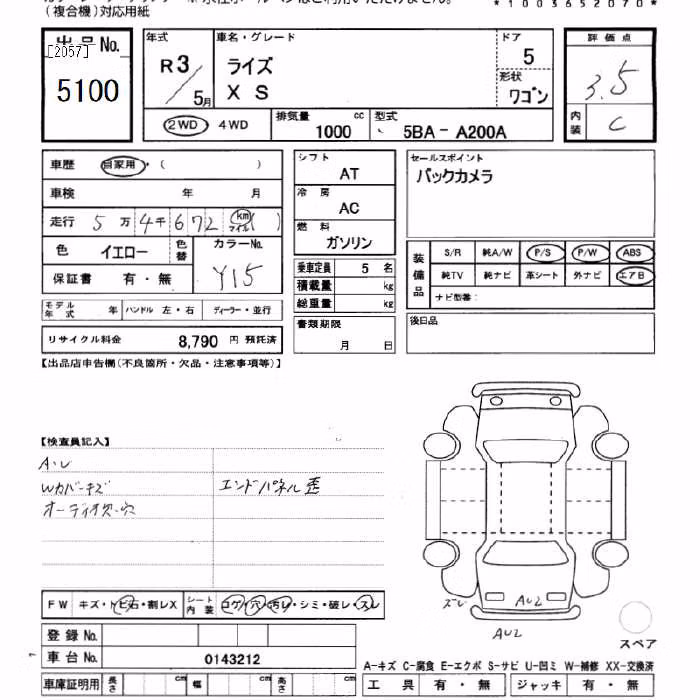 (複合機)対応用紙
*1003652070*
出品No.
[2057]
5100
年式
R3/5月
車名・グレード
ライズ
X S
ドア
5
形状
ワゴン
評価点
3.5
内装
C
2WD ・ 4WD
排気量 cc
1000
型式
5BA - A200A
車歴 自家用・( )
車検 年 月
走行 5万 4千 672 km マイル ( )
色 イエロー 色替
カラーNo.
Y15
保証書 有・無
モデル年式 年 ハンドル 左・右 ディーラー・並行
リサイクル料金 8,790 円 預託済
シフト
AT
冷房
AC
燃料
ガソリン
乗車定員 5 名
積載量 kg
総重量 kg
書類期限
月 日
セールスポイント
バックカメラ
装備品
S/R 純A/W P/S P/W ABS
純TV 純ナビ 革シート 外ナビ エアB
ナビ型番:
後日品
【出品店申告欄(不良箇所・欠品・注意事項等)】
【検査員記入】
A・U
Wカバーキズ
オーディオ欠・穴
エンドパネル歪
FW キズ・トビ石・割レX
シート内装 コゲ・穴・汚レ・シミ・破レ・スレ
登録No.
車台No. 0143212
車庫証明用 長さ cm 幅 cm 高さ cm
ズレ
AU2
AU2
スペア
A-キズ C-腐食 E-エクボ S-サビ U-凹ミ W-補修 XX-交換済
工具 有・無 ジャッキ 有・無